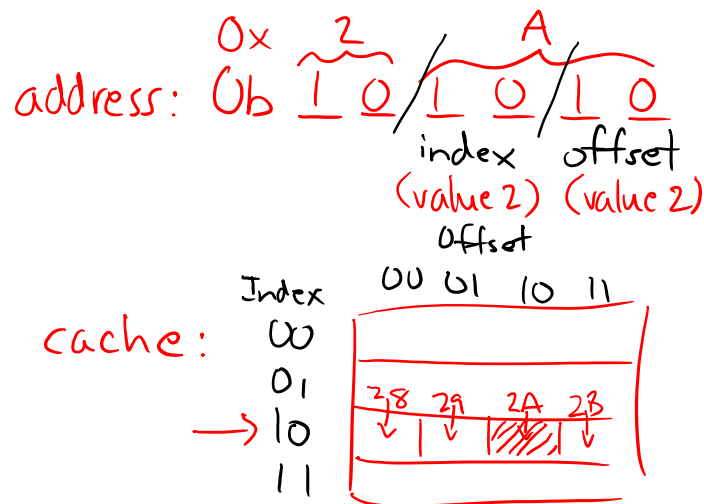 0x 2 A
address: 0b 1 0 / 1 0 / 1 0
index offset
(value 2) (value 2)
Offset
Index 00 01 10 11
cache: 00
01
28 29 2A 2B
10
11